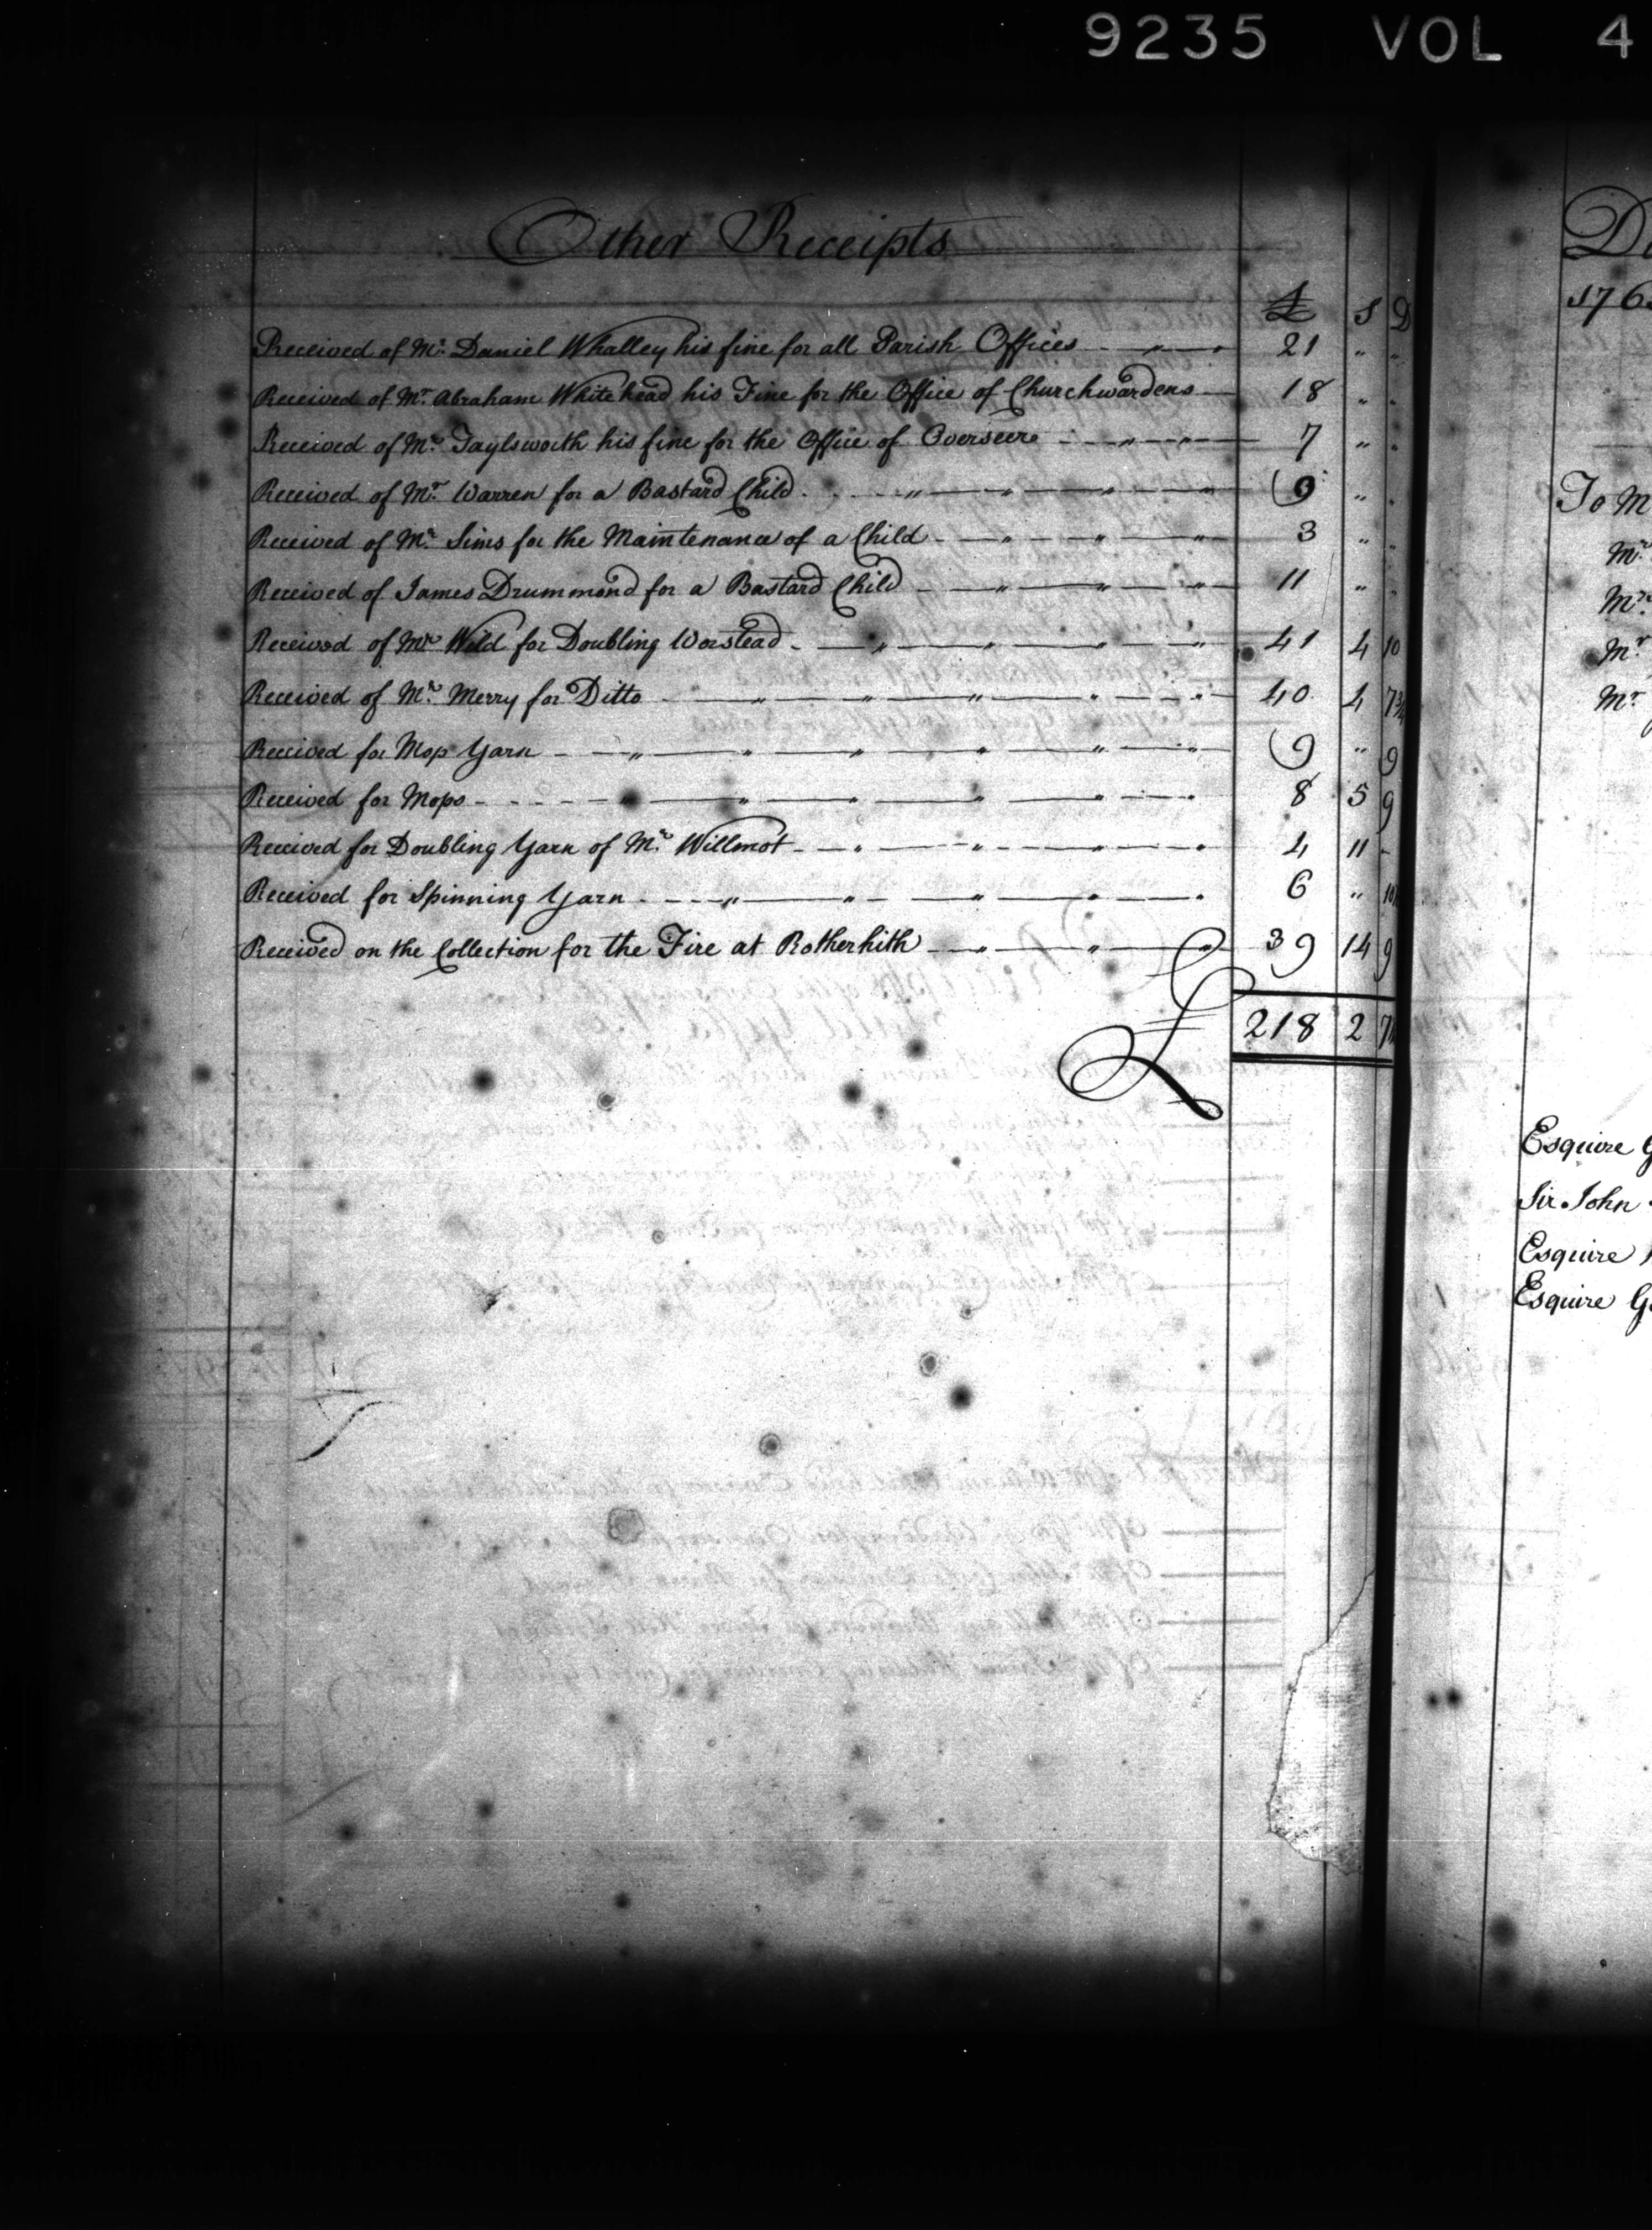 9235 VOL 4
Other Receipts
£ S D
Received of Mr. Daniel Whalley his fine for all Parish Offices - " - 21 " "
Received of Mr. Abraham Whitehead his Fine for the Office of Churchwardens - 18 " "
Received of Mr. Taylsworth his fine for the Office of Overseere - " - " - 7 " "
Received of Mr. Warren for a Bastard Child - " - " - " - " - 9 " "
Received of Mr. Sims for the Maintenance of a Child - " - " - " - 3 " "
Received of James Drummond for a Bastard Child - " - " - " - 11 " "
Received of Mr. Wild for Doubling Worstead - " - " - " - " - 41 4 10
Received of Mr. Merry for Ditto - " - " - " - " - " - 40 4 7¾
Received for Mop Yarn - " - " - " - " - " - " - 9 " 9
Received for Mops - " - " - " - " - " - " - 8 5 9
Received for Doubling Yarn of Mr. Willmot - " - " - " - " - 4 11 -
Received for Spinning Yarn - " - " - " - " - " - 6 " 10
Received on the Collection for the Fire at Rotherhith - " - " - " - 39 14 9
£ 218 2 7
176
To M
Mr.
Mr.
Mr.
Mr.
Esquire G
Sir John
Esquire
Esquire G